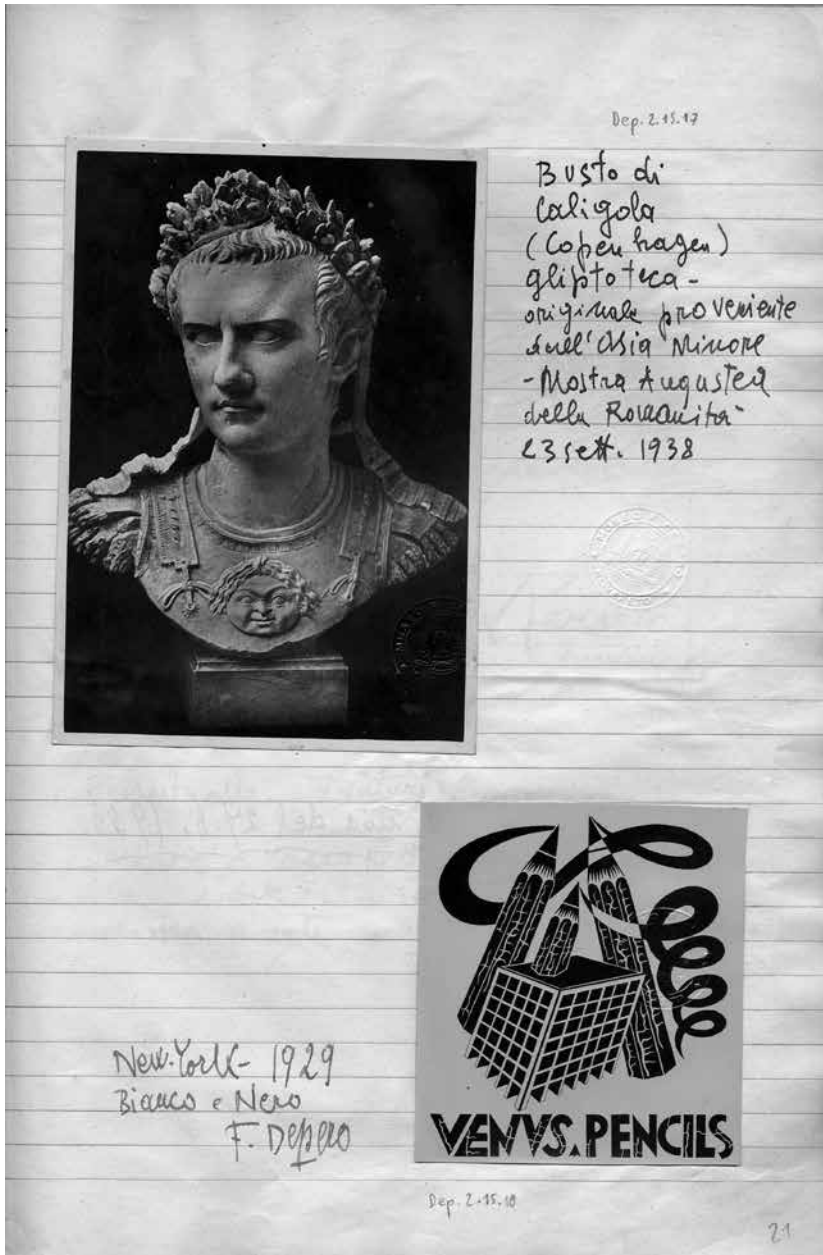 Dep. 2.15.17
Busto di
Caligola
(Copenhagen)
gliptoteca -
originale proveniente
dall'Asia Minore
- Mostra Augustea
della Romanità
23 sett. 1938
New-York - 1929
Bianco e Nero
F. Depero
VENVS. PENCILS
Dep. 2.15.18
21